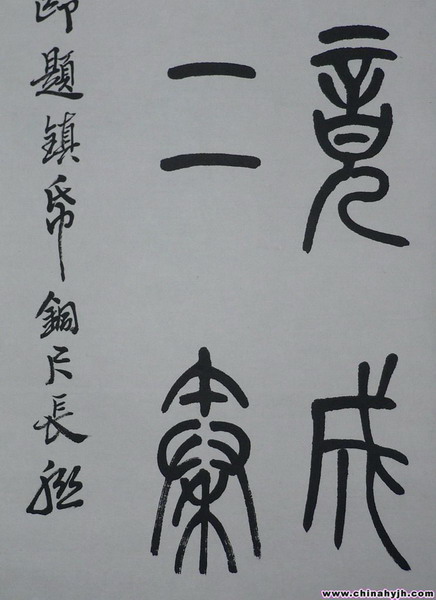 竟成
二秦
題鎮帋銅尺長聯
www.chinahyjh.com